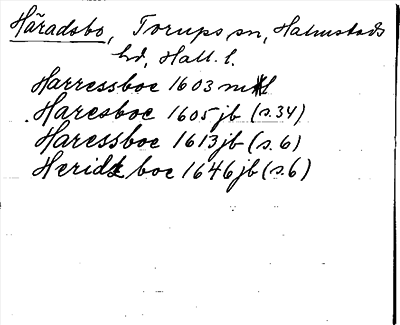 Häradsbo, Torups sn, Halmstads
hd, Hall. l.
Harressboe 1603 mtl
Haresboe 1605 jb (s. 34)
Haressboe 1613 jb (s. 6)
Heridz boe 1646 jb (s. 6)